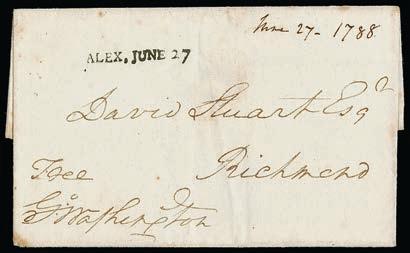 June 27- 1788
ALEX, JUNE 27
David Stuart Esqr
Richmond
Free
Go: Washington